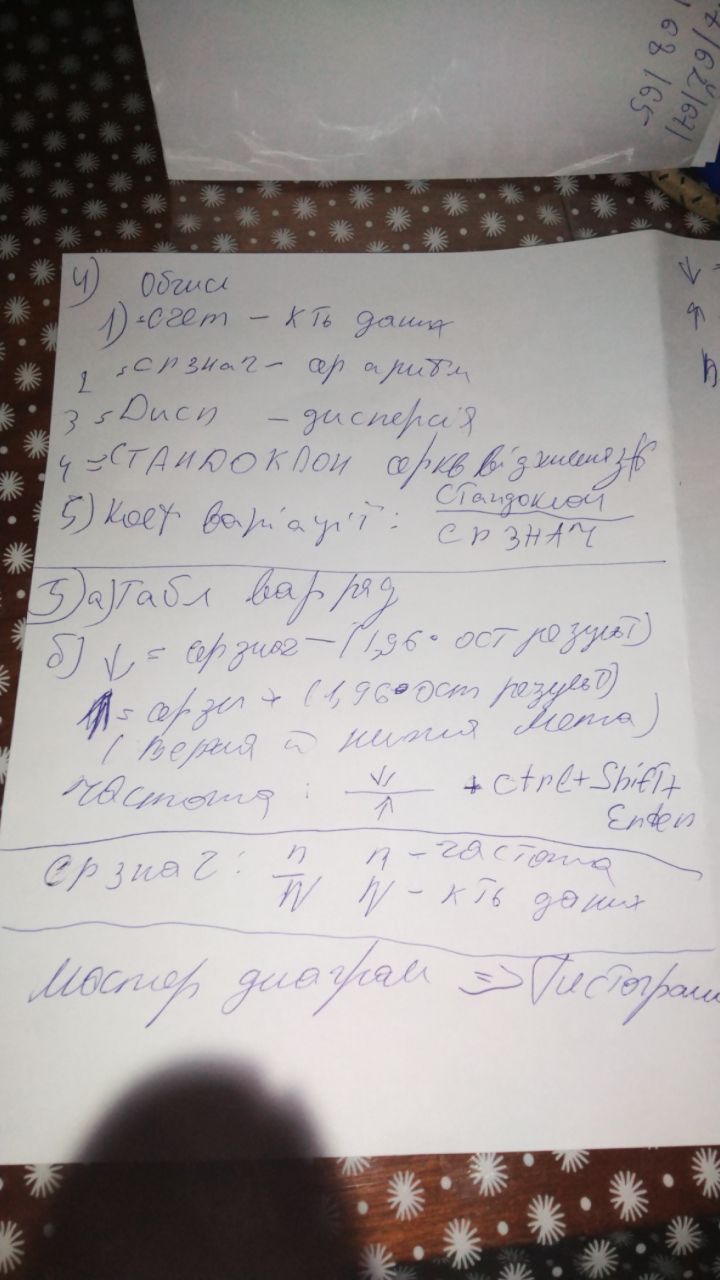 7/62/67/
68/65
4) Обчисл
1) =счет – кть даних
2 =срзнач – ср аритм
3 =Дисп – дисперсія
4 =СТАНДОКЛОН сркв відхилення
5) Коеф варіації: Стандоклон
СРЗНАЧ
5) а) Табл вар ряд
б) ↓ = срзнач – (1,96 · ост результ)
↑ = срзн + (1,96 · ост результ)
(верхня і нижня межа)
Частота: ↓/↑ + Ctrl + Shift +
Enter
Срзнач: n/N n – частота
N – кть даних
Мастер диаграм => Гистограм